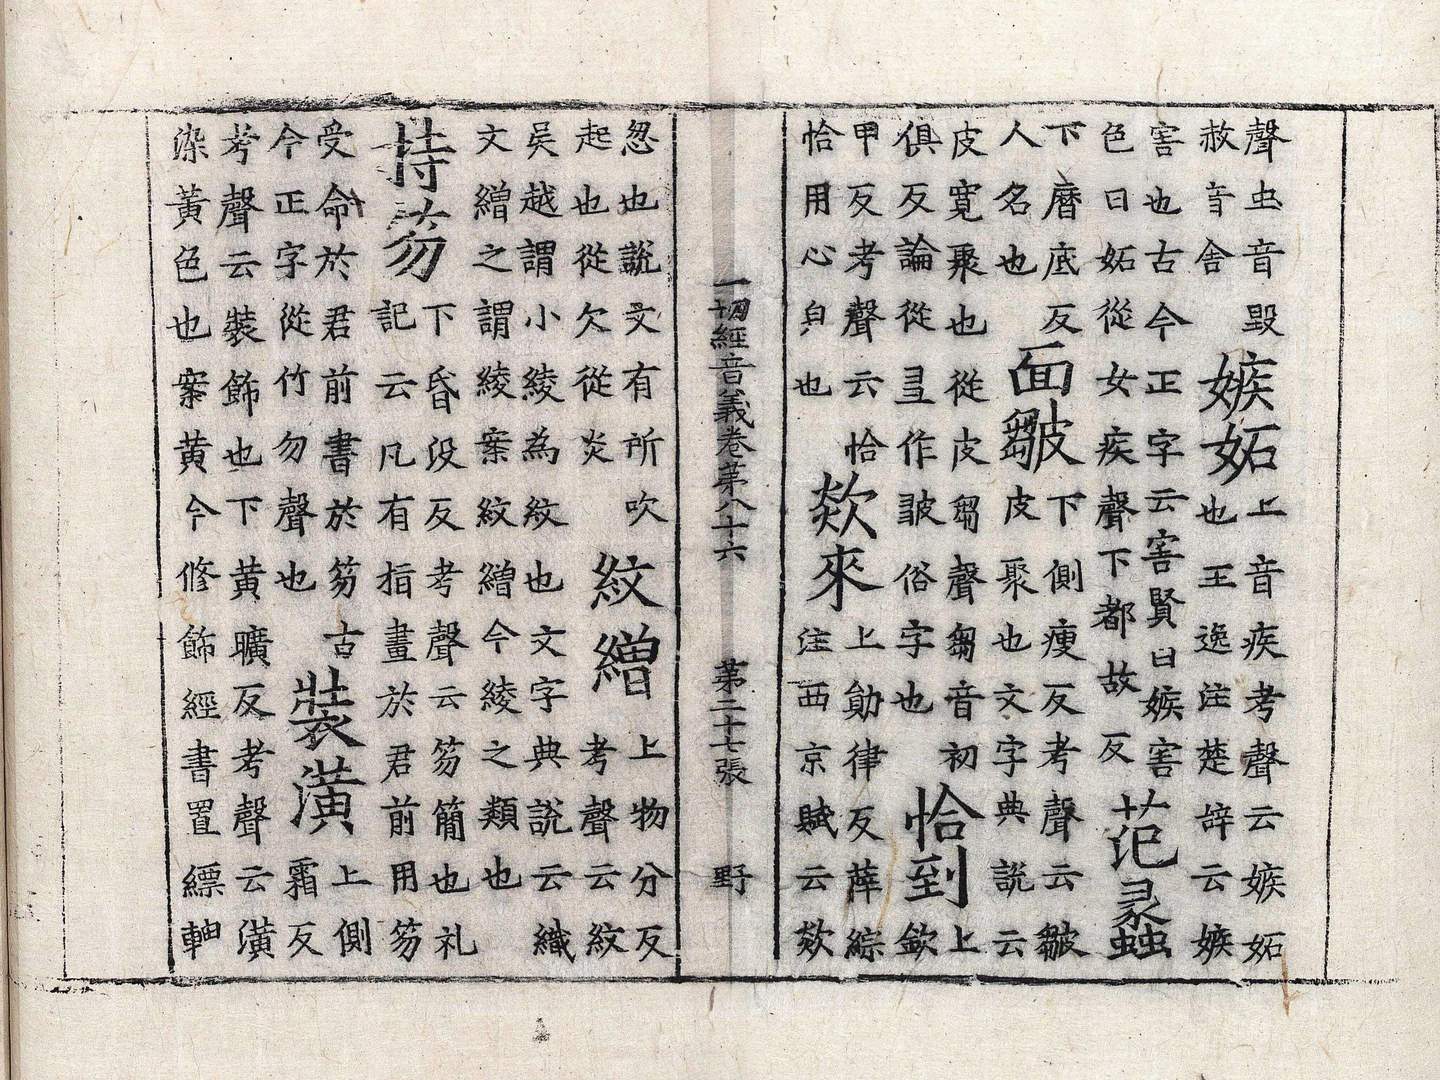 聲虫音毀
赦音舍
嫉妬
上音疾考聲云嫉妬
也王逸注楚辞云嫉
害也古今正字云害賢曰嫉害
色曰妬從女疾聲下都故反
范蠡
下曆底反
人名也
面皺
下側瘦反考聲云皺
皮聚也文字典說云
皮寬聚也從皮芻聲芻音初
俱反論從作皷俗字也
恰到
上
欽
甲反考聲云恰
恰用心皃也
欻來
上勛律反薛綜
注西京賦云欻
一切經音義卷苐八十六 苐二十七張 野
忽也說文有所吹
起也從欠從炎
紋繒
上物分反
考聲云紋
吳越謂小綾為紋也文字典說云織
文繒之謂綾案紋繒今綾之類也
持笏
下昏沒反考聲云笏簡也礼
記云凡有指畫於君前用笏
受命於君前書於笏古
今正字從竹勿聲也
裝潢
上側
霜反
考聲云裝飾也下黃曠反考聲云潢
染黃色也案黃今修飾經書置縹軸